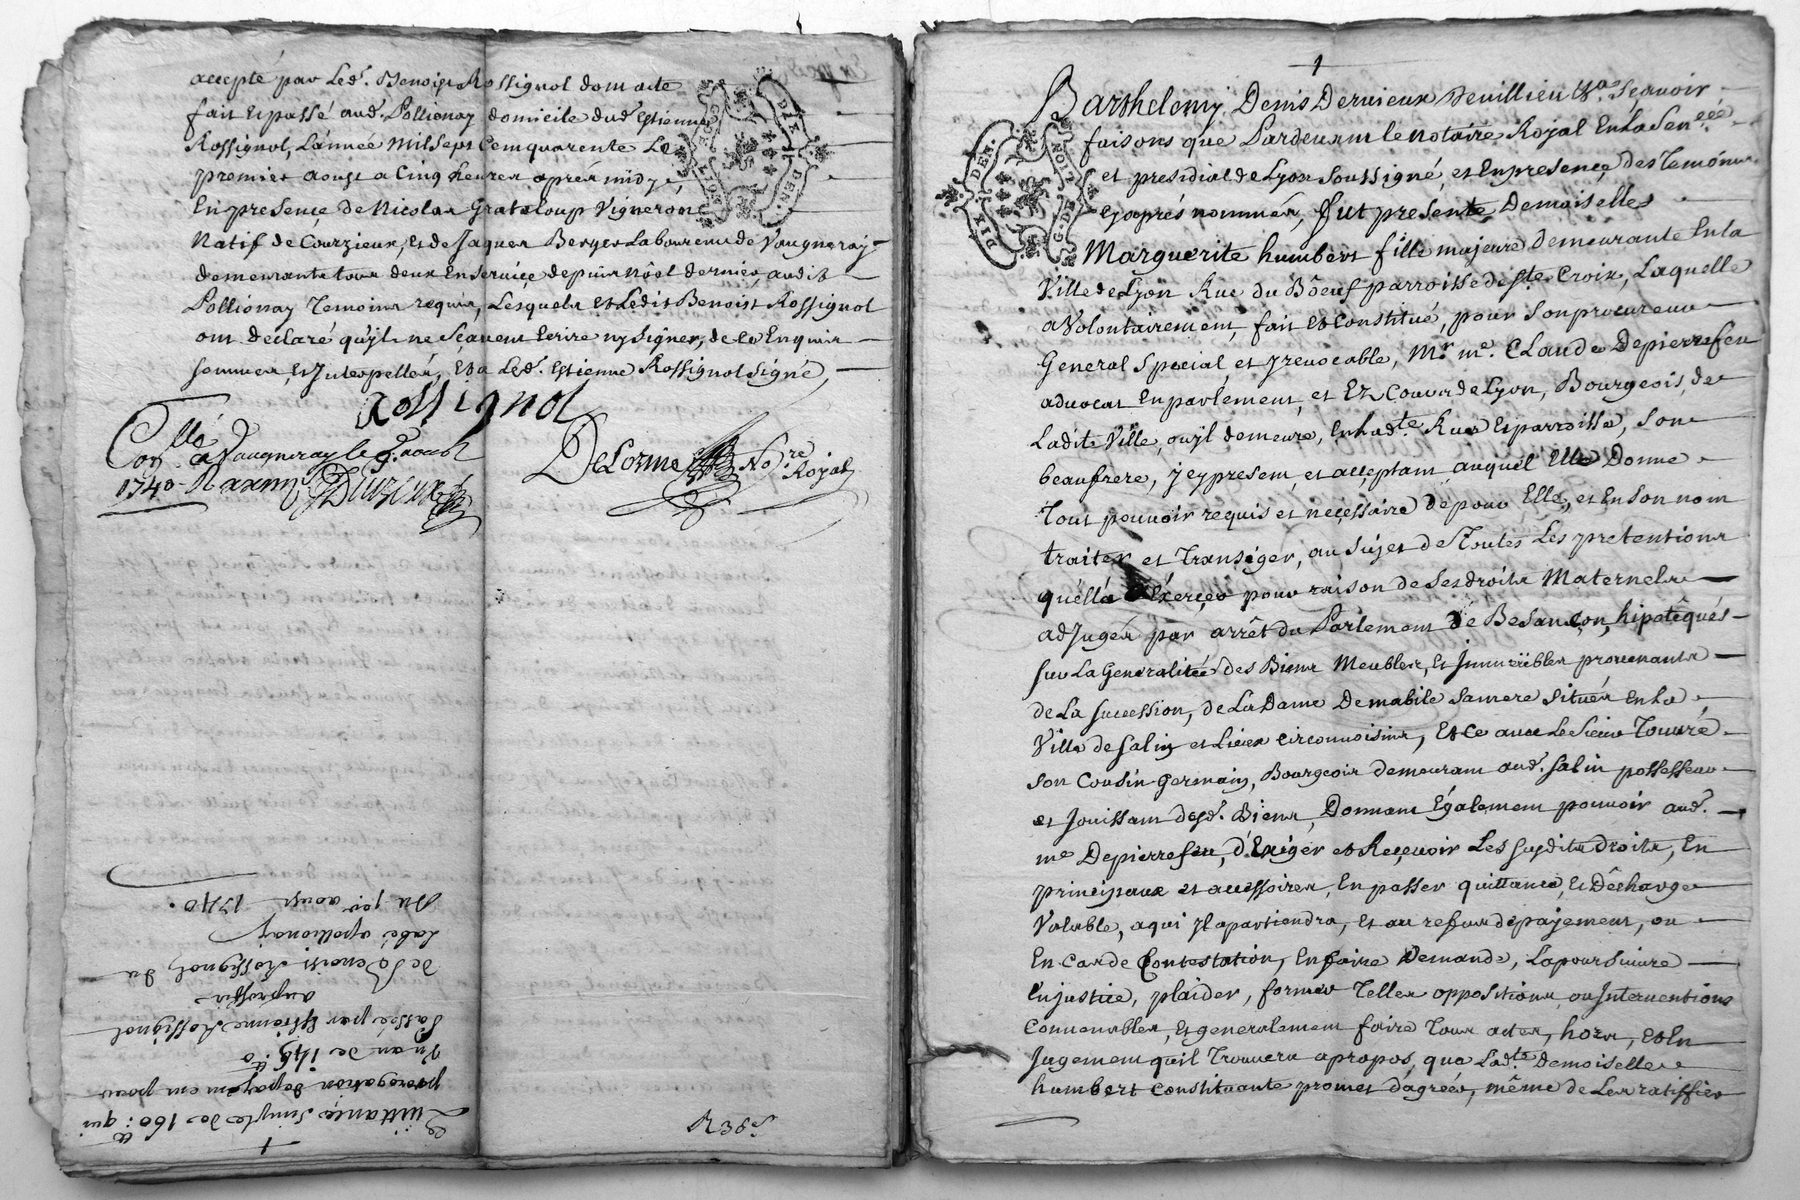 accepté par Led. Benoist Rossignol dont acte
fait et passé aud. Pollionay domicile dud. Estienne
Rossignol, L'année Mil sept Cent quarente Le
premier aoust a Cinq heures aprés midy,
En presence de Nicolas Grataloup Vigneron
Natif de Courzieux, et de Jaques Berger Laboureur de Vaugneray
demeurants tous deux En service depuis nôel dernier audit
Pollionay Temoins requis, Lesquels et Ledit Benoist Rossignol
ont declaré qu'ils ne sçavent Ecrire ny signer, de ce Enquis
sommés et Interpellés, Et a Led. Estienne Rossignol signé,
Rossignol
Conllé a Vaugneray le 8 aoust
1740
DeLorme No.re
Royal
Quittance simple de 160: qui
porogation de payem ent pour
Un an de
Passée par Estienne Rossignol
au proffit
de Benoist Rossignol du
Labé a pollionay
Du 1er aoust 1740.
1
Barthelemy Denis Dervieux de Villieu &a. Sçavoir
faisons que Pardevant le notaire Royal En la Sen.ée
et presidial de Lyon soussigné, et En presence des Temoins
cy aprés nommés, fut presente, Demoiselle
Marguerite humbert fille majeure demeurante En la
Ville de Lyon Rue du Bôeuf parroisse de ste. Croix, Laquelle
a Volontairement, fait et constitué, pour son procureur
General special et jrevocable, Mr. me. Claude Depierrefeu
advocat En parlement, et Ez Cours de Lyon, Bourgeois de
Ladite Ville, ou jl demeure, En lad.te Rue et parroisse, son
beaufrere, jcy present, et acceptant auquel Elle Donne
Tout pouvoir requis et neçessaire de pour Elle, et En son nom
traiter et Transiger, au sujet de Toutes Les pretentions
quélla d'Exerçer pour raison de ses droits Maternels
adjugés par arrêt du Parlement de Besançon, hipotêqués
sur La Generalitée des Biens Meubles, et Immeübles provenants
de La succession, de La Dame Demabile sa mere situés En La
Ville de salin et Lieux circonvoisins, Et Ce avec Le sieur Tourré
son Cousin germain, Bourgeois demeurant aud. salin possesseur
et Jouissant desd. Biens, Donnant Également pouvoir aud.
me Depierrefeu, d'Exiger et Reçevoir Les susdits droits, En
principaux et accessoires, En passer quittance, et Décharge
Valable, a qui jl apartiendra, Et au refus de payement, ou
En Cas de Contestation, En faire Demande, La poursuivre
En justice, plaider, former Telles oppositions, ou Interventions
Convenables, Et generalement faire Tous actes, hors, Et En
Jugement qu'il Trouvera apropos, que Lad.te Demoiselle
humbert Constituante promet d'agréer, même de Les ratiffier